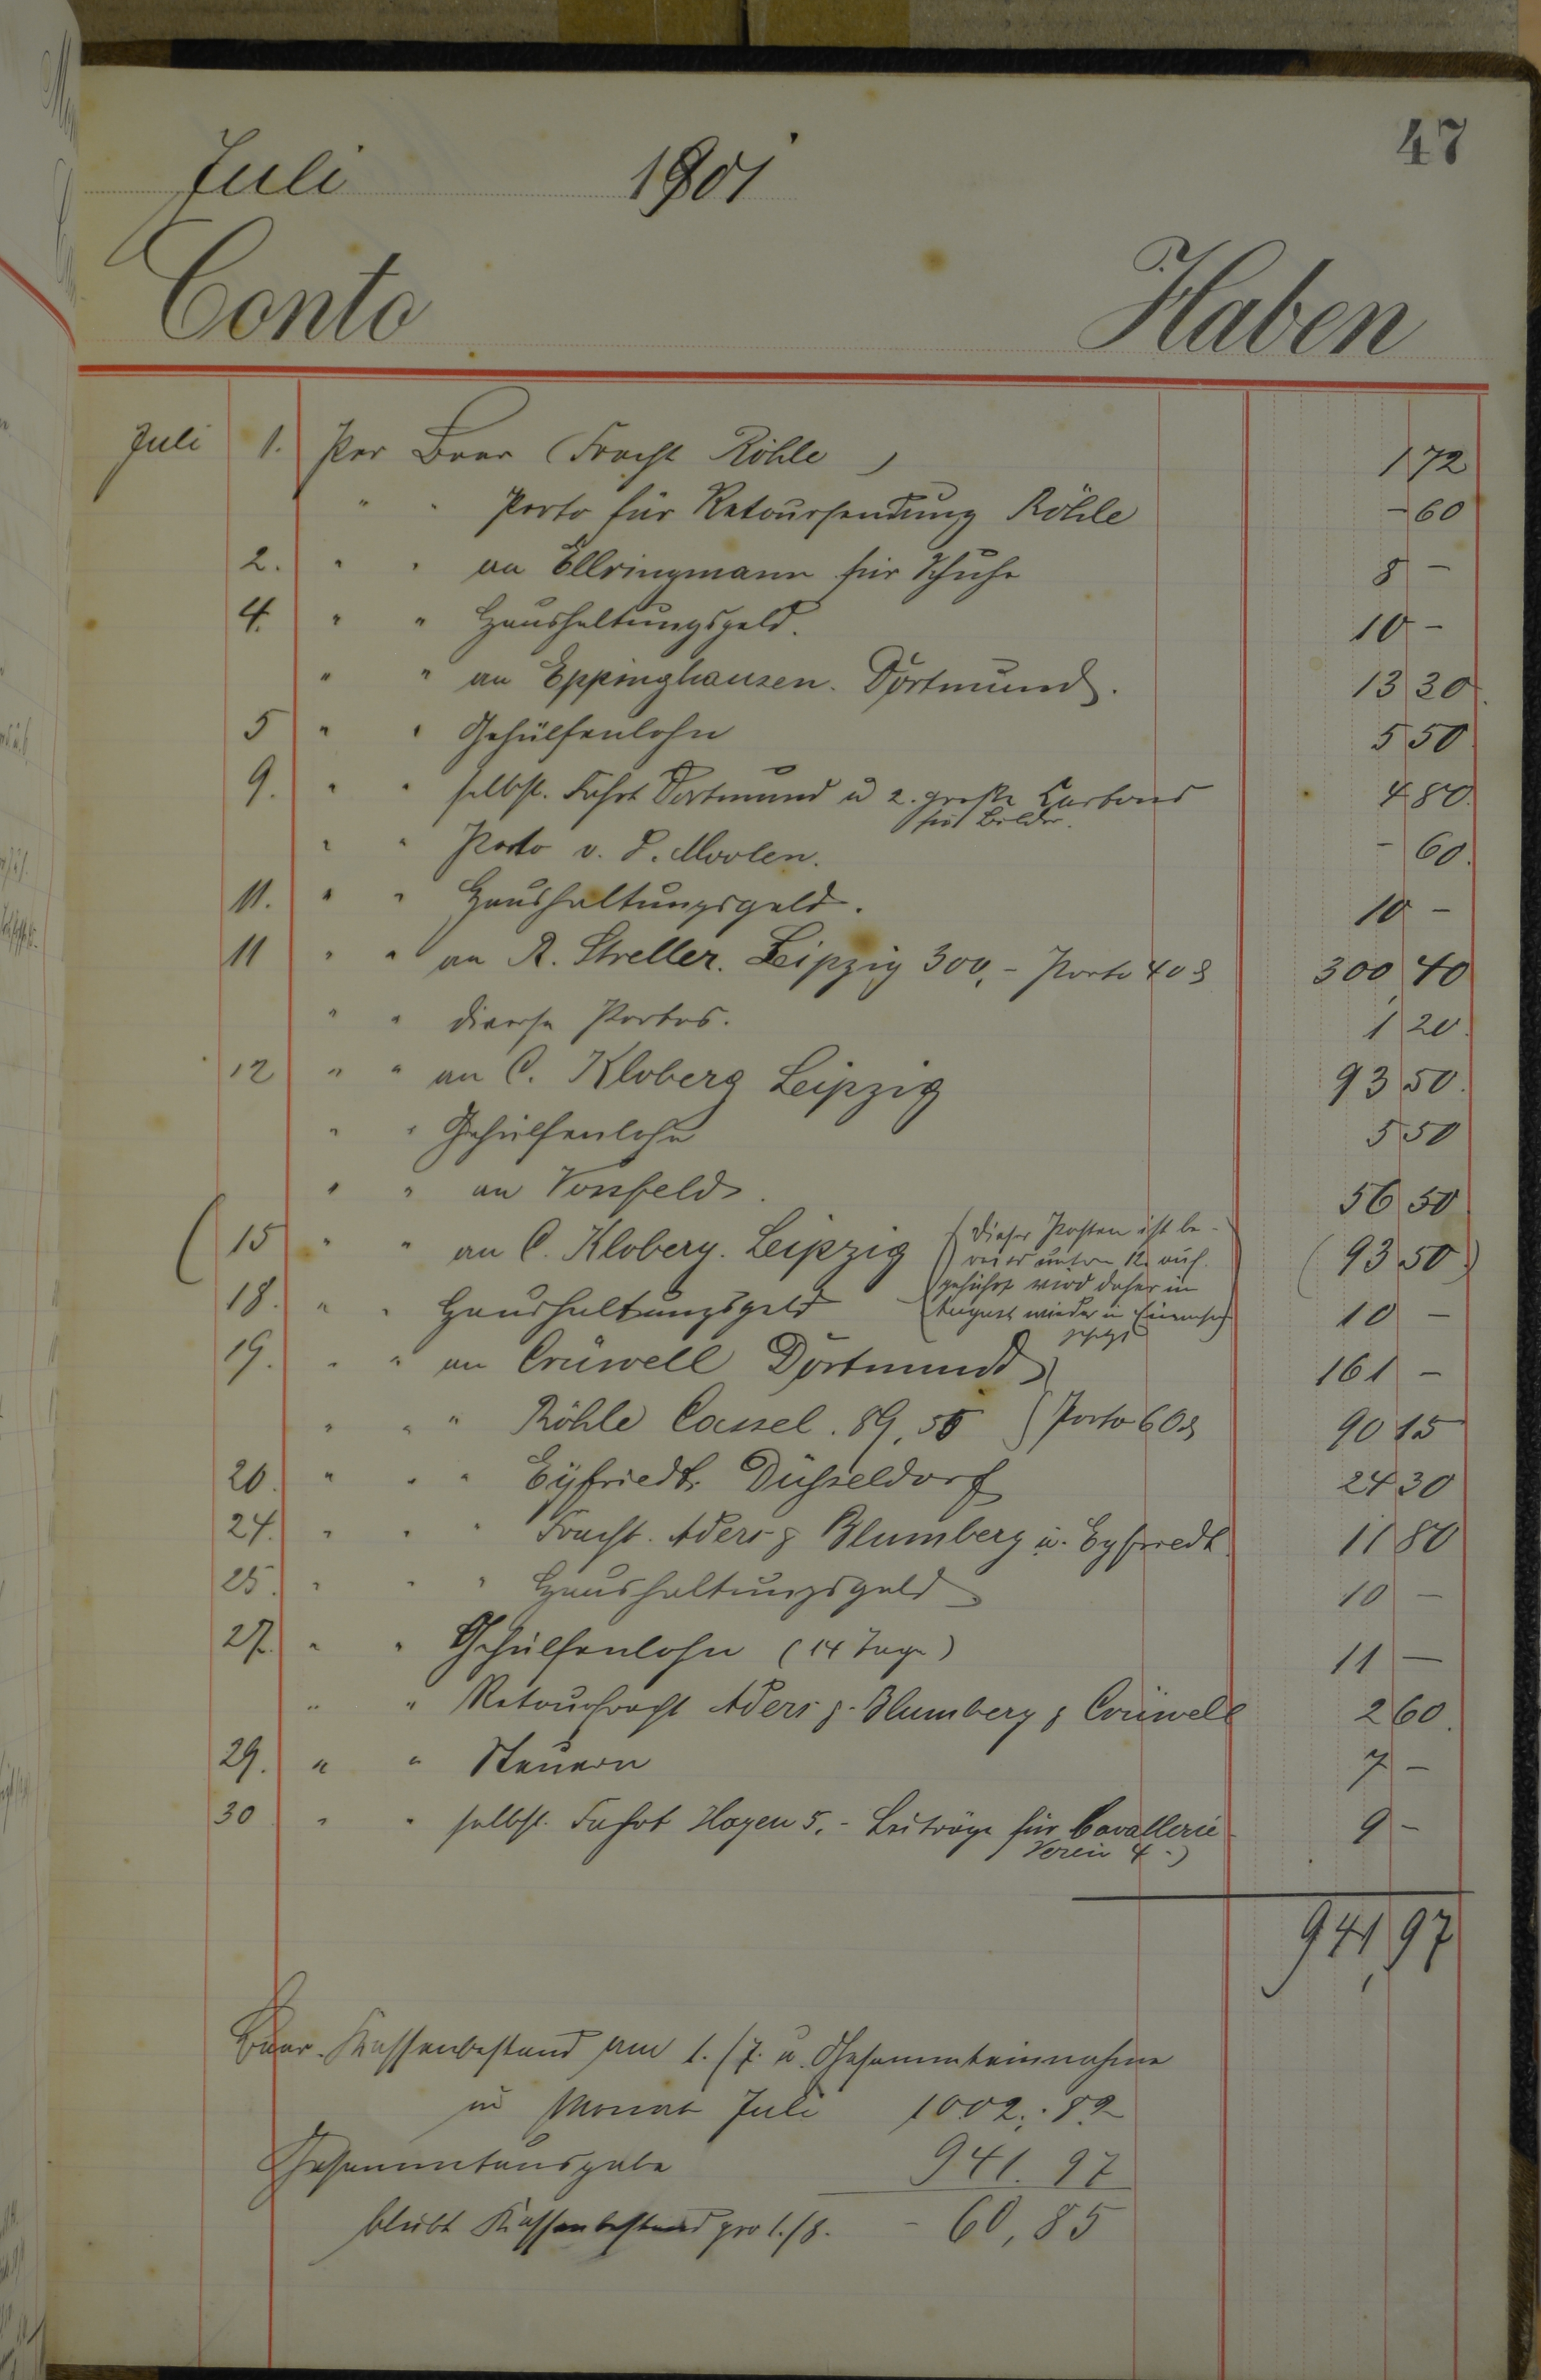 47
Juli 1901
Conto Haben
Juli 1. Per Baar (Fracht Röhle) 1 72
" " Porto für Retoursendung Röhle - 60
2. " " an Ellringmann für Schuhe 8 -
4. " " Haushaltungsgeld. 10 -
" " an Eppinghausen. Dortmund. 13 30
5 " " Gehülfenlohn 5 50
9. " " selbst. Fahrt Dortmund u 2. große Cartons 4 80
für Bilder.
" " Porto v. d. Moolen. - 60
11. " " Haushaltungsgeld. 10 -
11 " " an R. Streller. Leipzig 300,- Porto 40 ₰ 300 40
" " diverse Portos. 1 20
12 " " an C. Kloberg Leipzig 93 50
" " Gehülfenlohn 5 50
" " an Vossfeld. 56 50
(15 " " an C. Kloberg. Leipzig (93 50)
(Dieser Posten ist be-
reits unter 12. auf-
geführt wird daher in
August wieder in Einnahme
gesetzt
18. " " Haushaltungsgeld 10 -
19. " " an Crüwell Dortmund 161 -
" " " Röhle Cassel. 89,55 (Porto 60 ₰ 90 15
20. " " " Eyfriedt. Düsseldorf 24 30
24. " " " Fracht. Aders & Blumberg u. Eyfriedt 11 80
25. " " " Haushaltungsgeld 10 -
27. " " Gehülfenlohn (14 Tage) 11 -
" " Retourfracht Aders & Blumberg & Crüwell 2 60
29. " " Steuern 7 -
30 " " selbst. Fahrt Hagen 5.- Beiträge für Cavallerie 9 -
Verein 4.-)
941,97
Baar-Kassenbestand am 1./7. u. Gesammteinnahme
im Monat Juli 1002.82
Gesammtausgabe 941.97
bleibt Kassenbestand pro 1./8. - 60,85